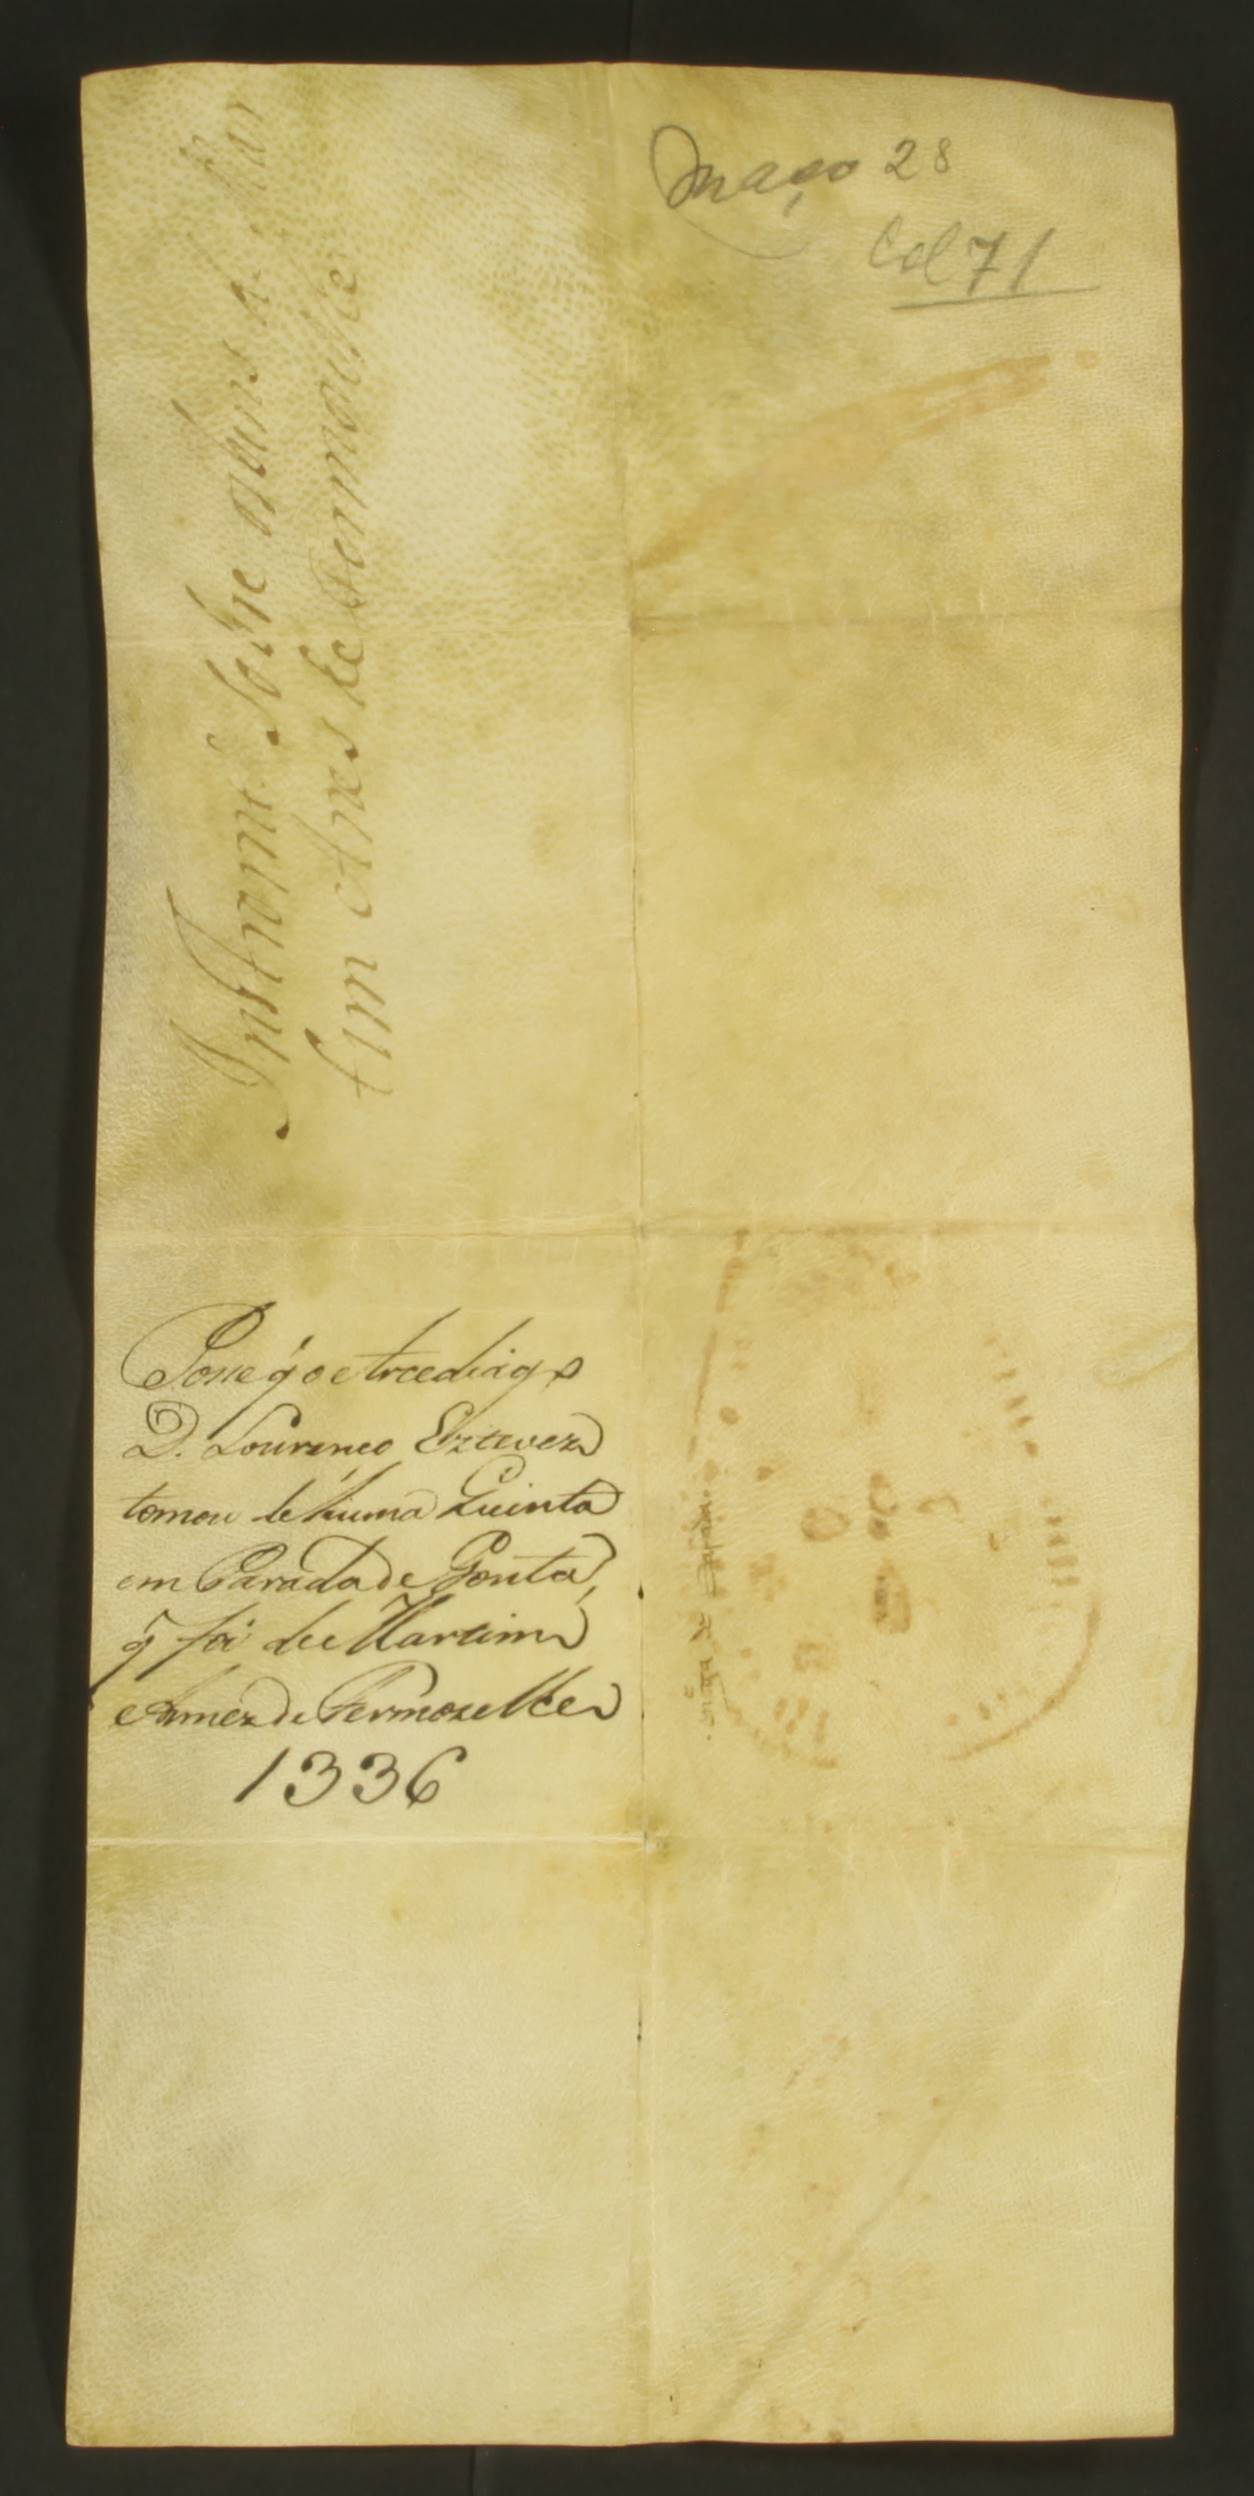 Maço 28
Col 71
Instromt. sobre a quinta
tim Anes de Fermoselhe
Posse q̃ o Arcediago
D. Lourenço Estevez
tomou de huma Quinta
em Parada de Gonta,
q̃ foi de Martim
Annez de Fermozelhe
1336